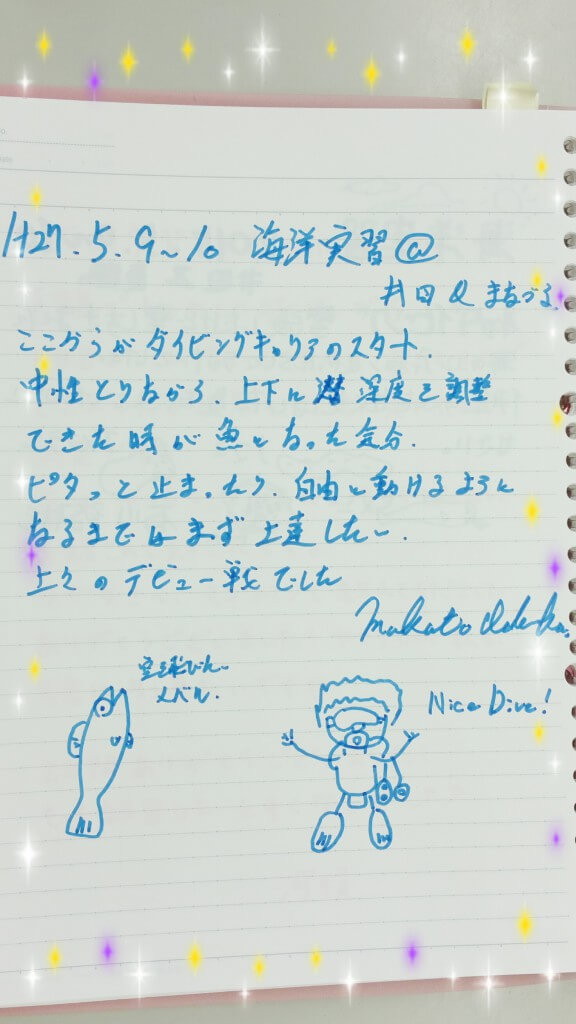 H27.5.9~10 海洋実習@
井田&まなづる.
ここからがダイビングキャリアのスタート.
中性とりながら、上下に深度を調整
できた時が魚になった気分.
ピタっと止まったり、自由に動けるように
なるまではまず上達したい.
上々のデビュー戦でした
Makoto
空を飛びたい
メバル.
Nice Dive!